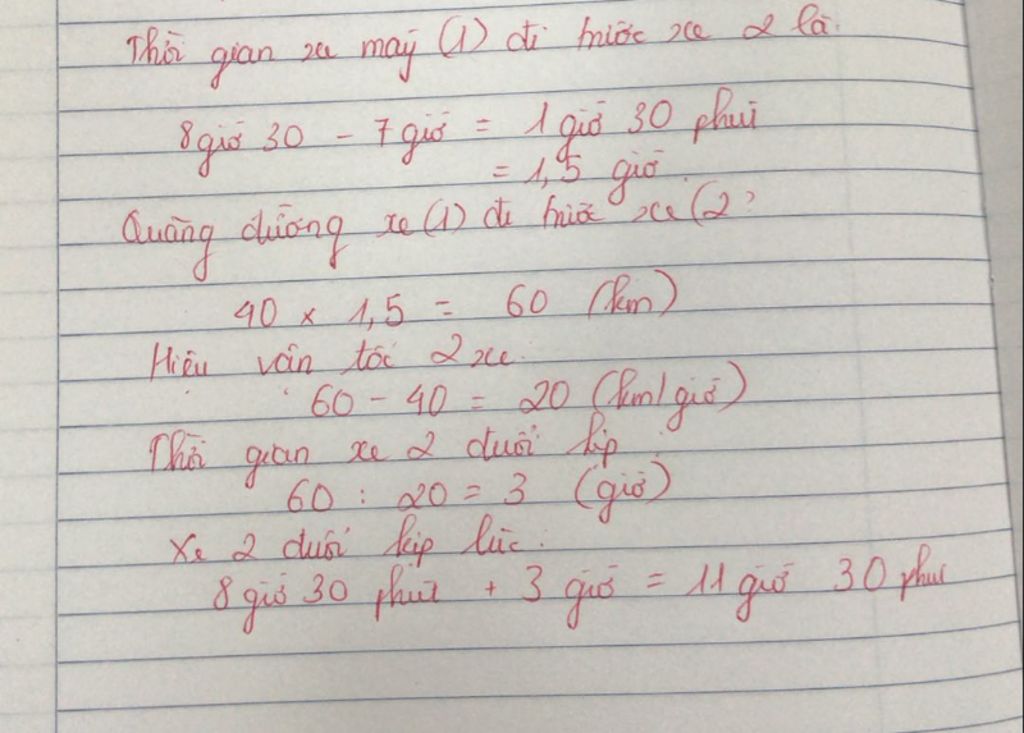 Thời gian xe máy (1) đi trước xe 2 là:
8 giờ 30 - 7 giờ = 1 giờ 30 phút
= 1,5 giờ.
Quãng đường xe (1) đi trước xe (2)
40 x 1,5 = 60 (km)
Hiệu vân tốc 2 xe:
60 - 40 = 20 (km/giờ)
Thời gian xe 2 đuổi kịp:
60 : 20 = 3 (giờ)
Xe 2 đuổi kịp lúc:
8 giờ 30 phút + 3 giờ = 11 giờ 30 phút